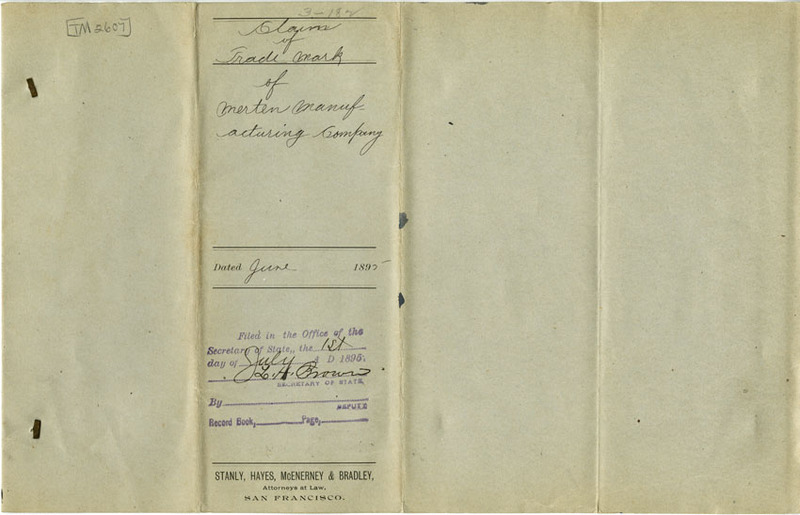 TM 2607
3-182
Claim
of
Trade Mark
of
Merten Manuf-
acturing Company
Dated June 1895
Filed in the Office of the
Secretary of State, the 1st
day of July A D 1895.
L. H. Brown
SECRETARY OF STATE.
By
DEPUTY
Record Book, Page,
STANLY, HAYES, McENERNEY & BRADLEY,
Attorneys at Law,
SAN FRANCISCO.